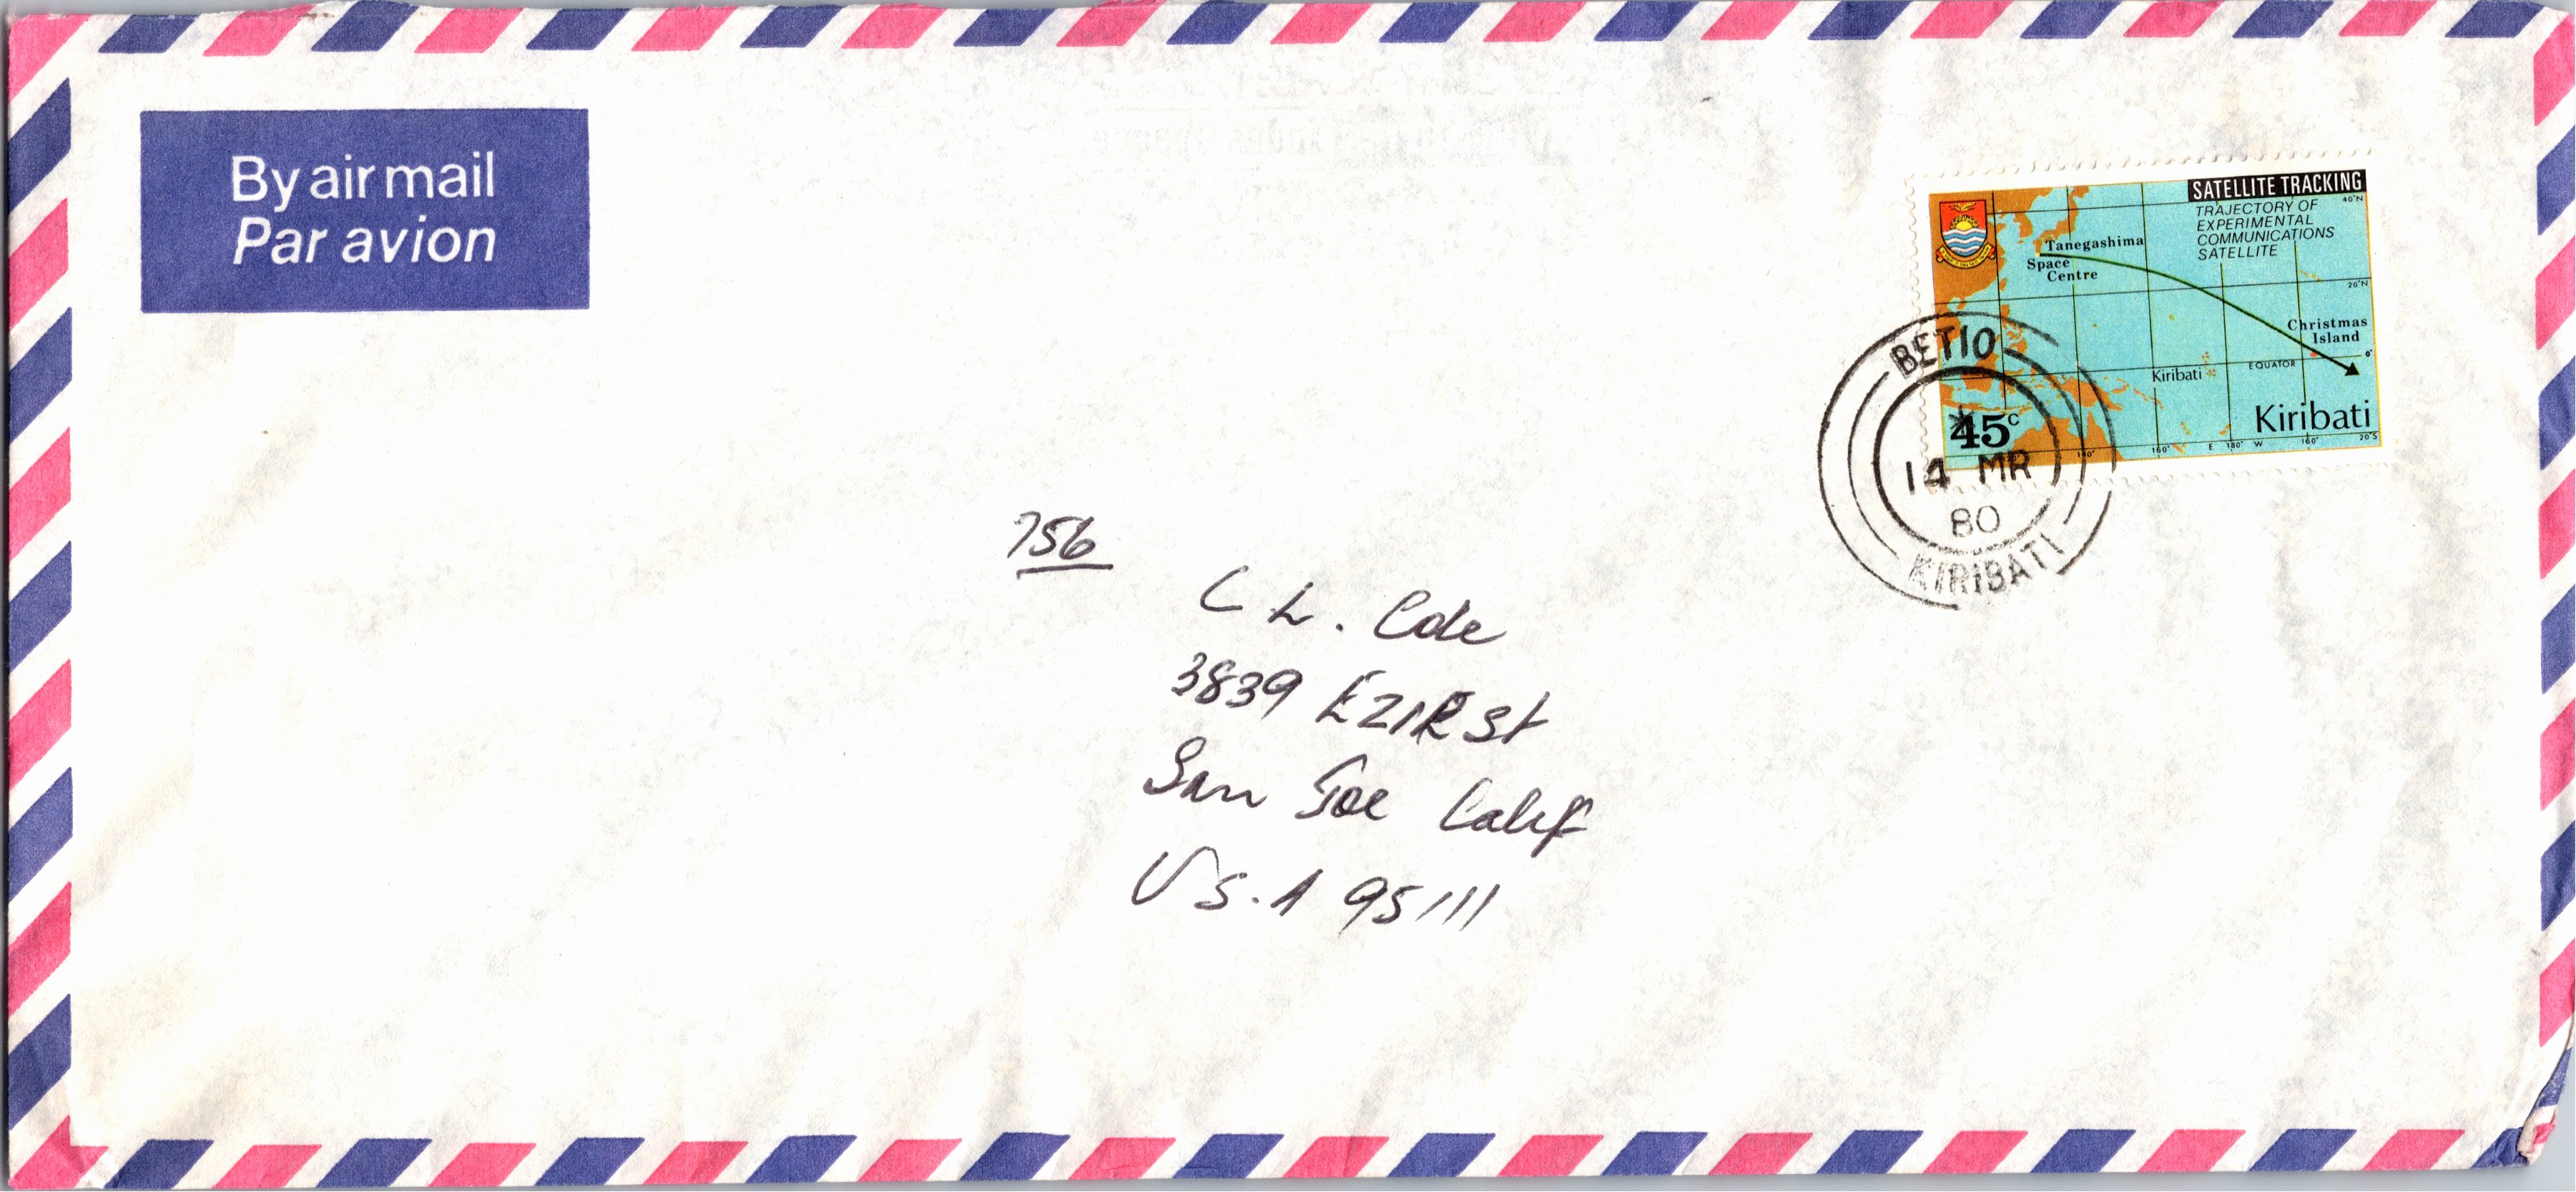 By air mail
Par avion
SATELLITE TRACKING
TRAJECTORY OF
EXPERIMENTAL
COMMUNICATIONS
SATELLITE
40°N
Tanegashima
Space
Centre
20°N
Christmas
Island
0°
EQUATOR
Kiribati
45c
Kiribati
140° 160° E 180° W 160° 20°S
BETIO
14 MR
80
KIRIBATI
756
C L. Cole
3839 EZIE St
San Joe Calif
U S. A 95111